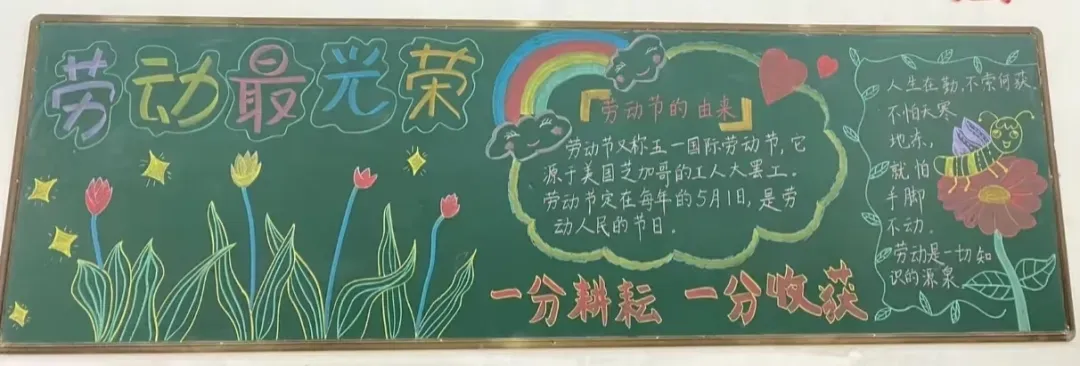 劳动最光荣
『劳动节的由来』
劳动节又称五一国际劳动节,它
源于美国芝加哥的工人大罢工。
劳动节定在每年的5月1日,是劳
动人民的节日。
一分耕耘 一分收获
人生在勤,不索何获
不怕天寒
地冻,
就怕
手脚
不动.
劳动是一切知
识的源泉。